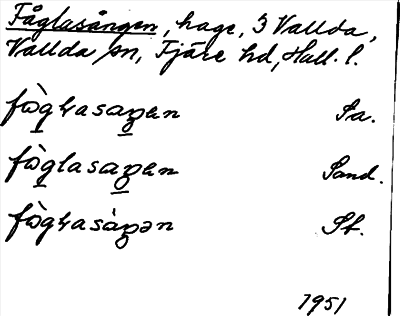 Fåglasången, hage, 3 Vallda,
Vallda sn, Fjäre hd, Hall. l.
fò̀gɩasaꞑen Sa.
fò̀glasaꞑen Sand.
fò̀gɩasàꞑən St.
1951